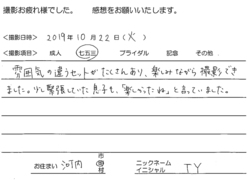 撮影お疲れ様でした。 感想をお願いいたします。
●撮影日時> 2019年10月22日(火)
●撮影項目> 成人 七五三 ブライダル 記念 その他
雰囲気の違うセットがたくさんあり、楽しみながら撮影でき
ました。少し緊張していた息子も、「楽しかったね」と言っていました。
お住まい 河内 市 町 村
ニックネーム イニシャル TY